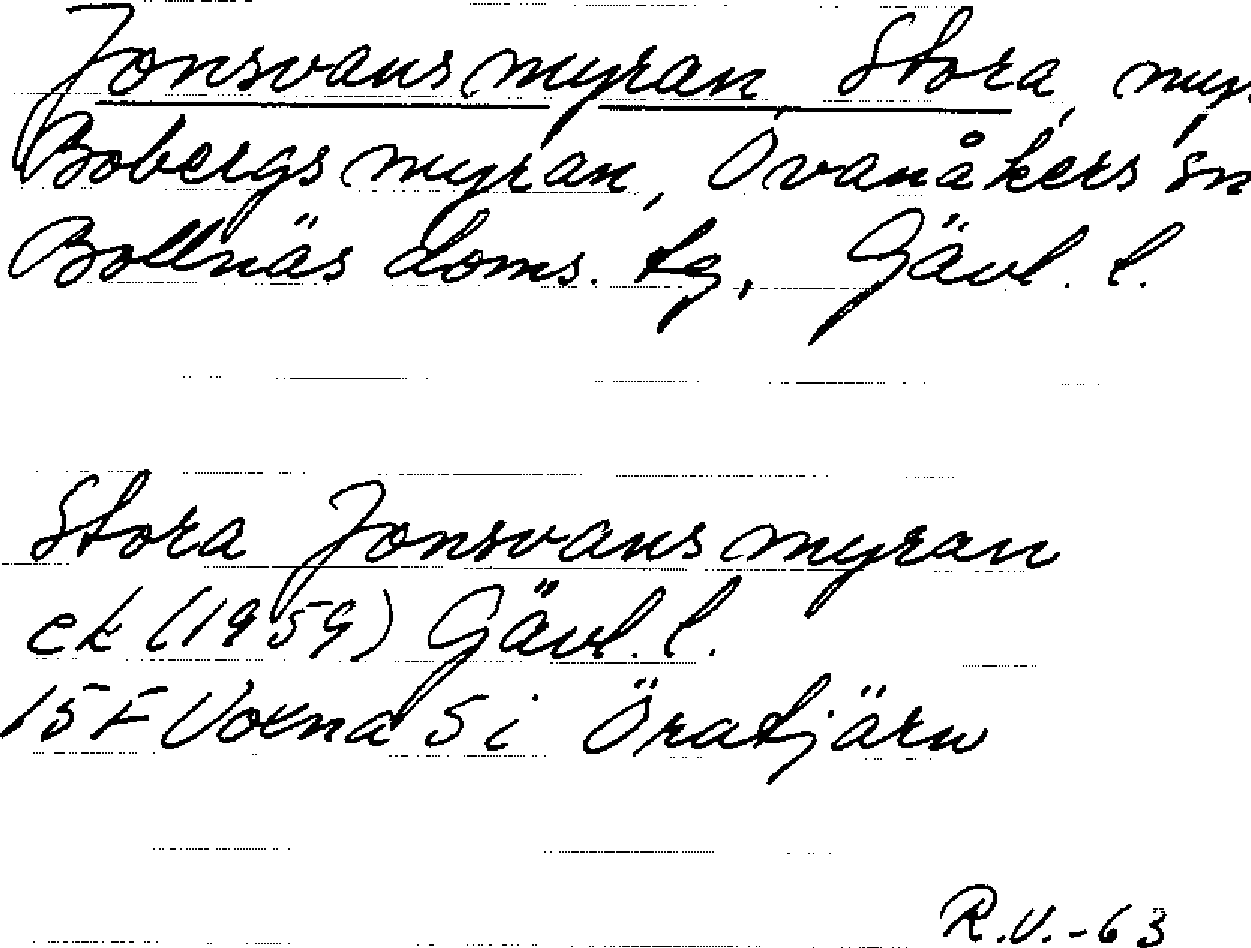 Jonsvansmyran, Stora, myr,
Bobergsmyran, Ovanåkers sn
Bollnäs doms. tg, Gävl. l.
Stora Jonsvansmyran
ek (1959) Gävl. l.
15F Voxna 5 i Öratjärn
R.V.-63